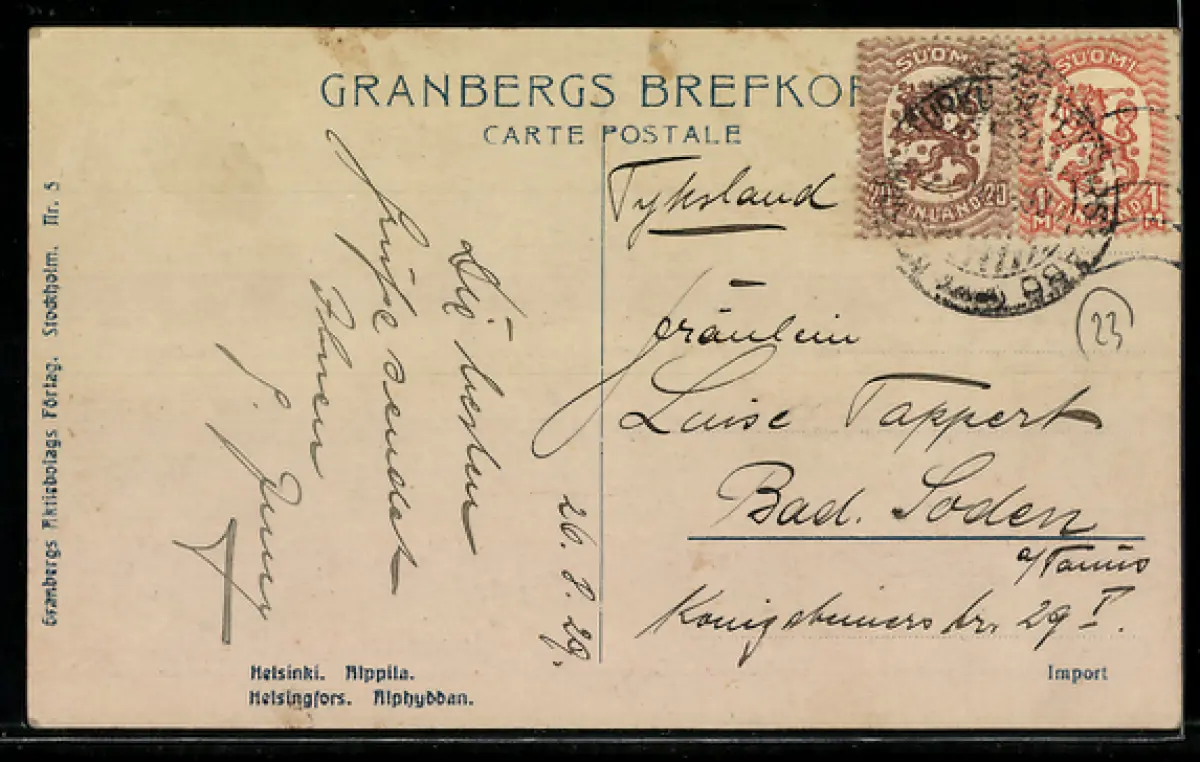 GRANBERGS BREFKOR
CARTE POSTALE
SUOMI
20 FINLAND 20
SUOMI
1 M FINLAND 1 M
TURKU
Tyksland
Fräulein
Luise Tappert
Bad. Soden
a/Taunus
Königsteiners str. 29 I.
(23)
Die besten
Grüße sendet
Ihnen
26. 8. 29.
Granbergs Aktiebolags Förlag. Stockholm. Nr. 5
Helsinki. Alppila.
Helsingfors. Alphyddan.
Import